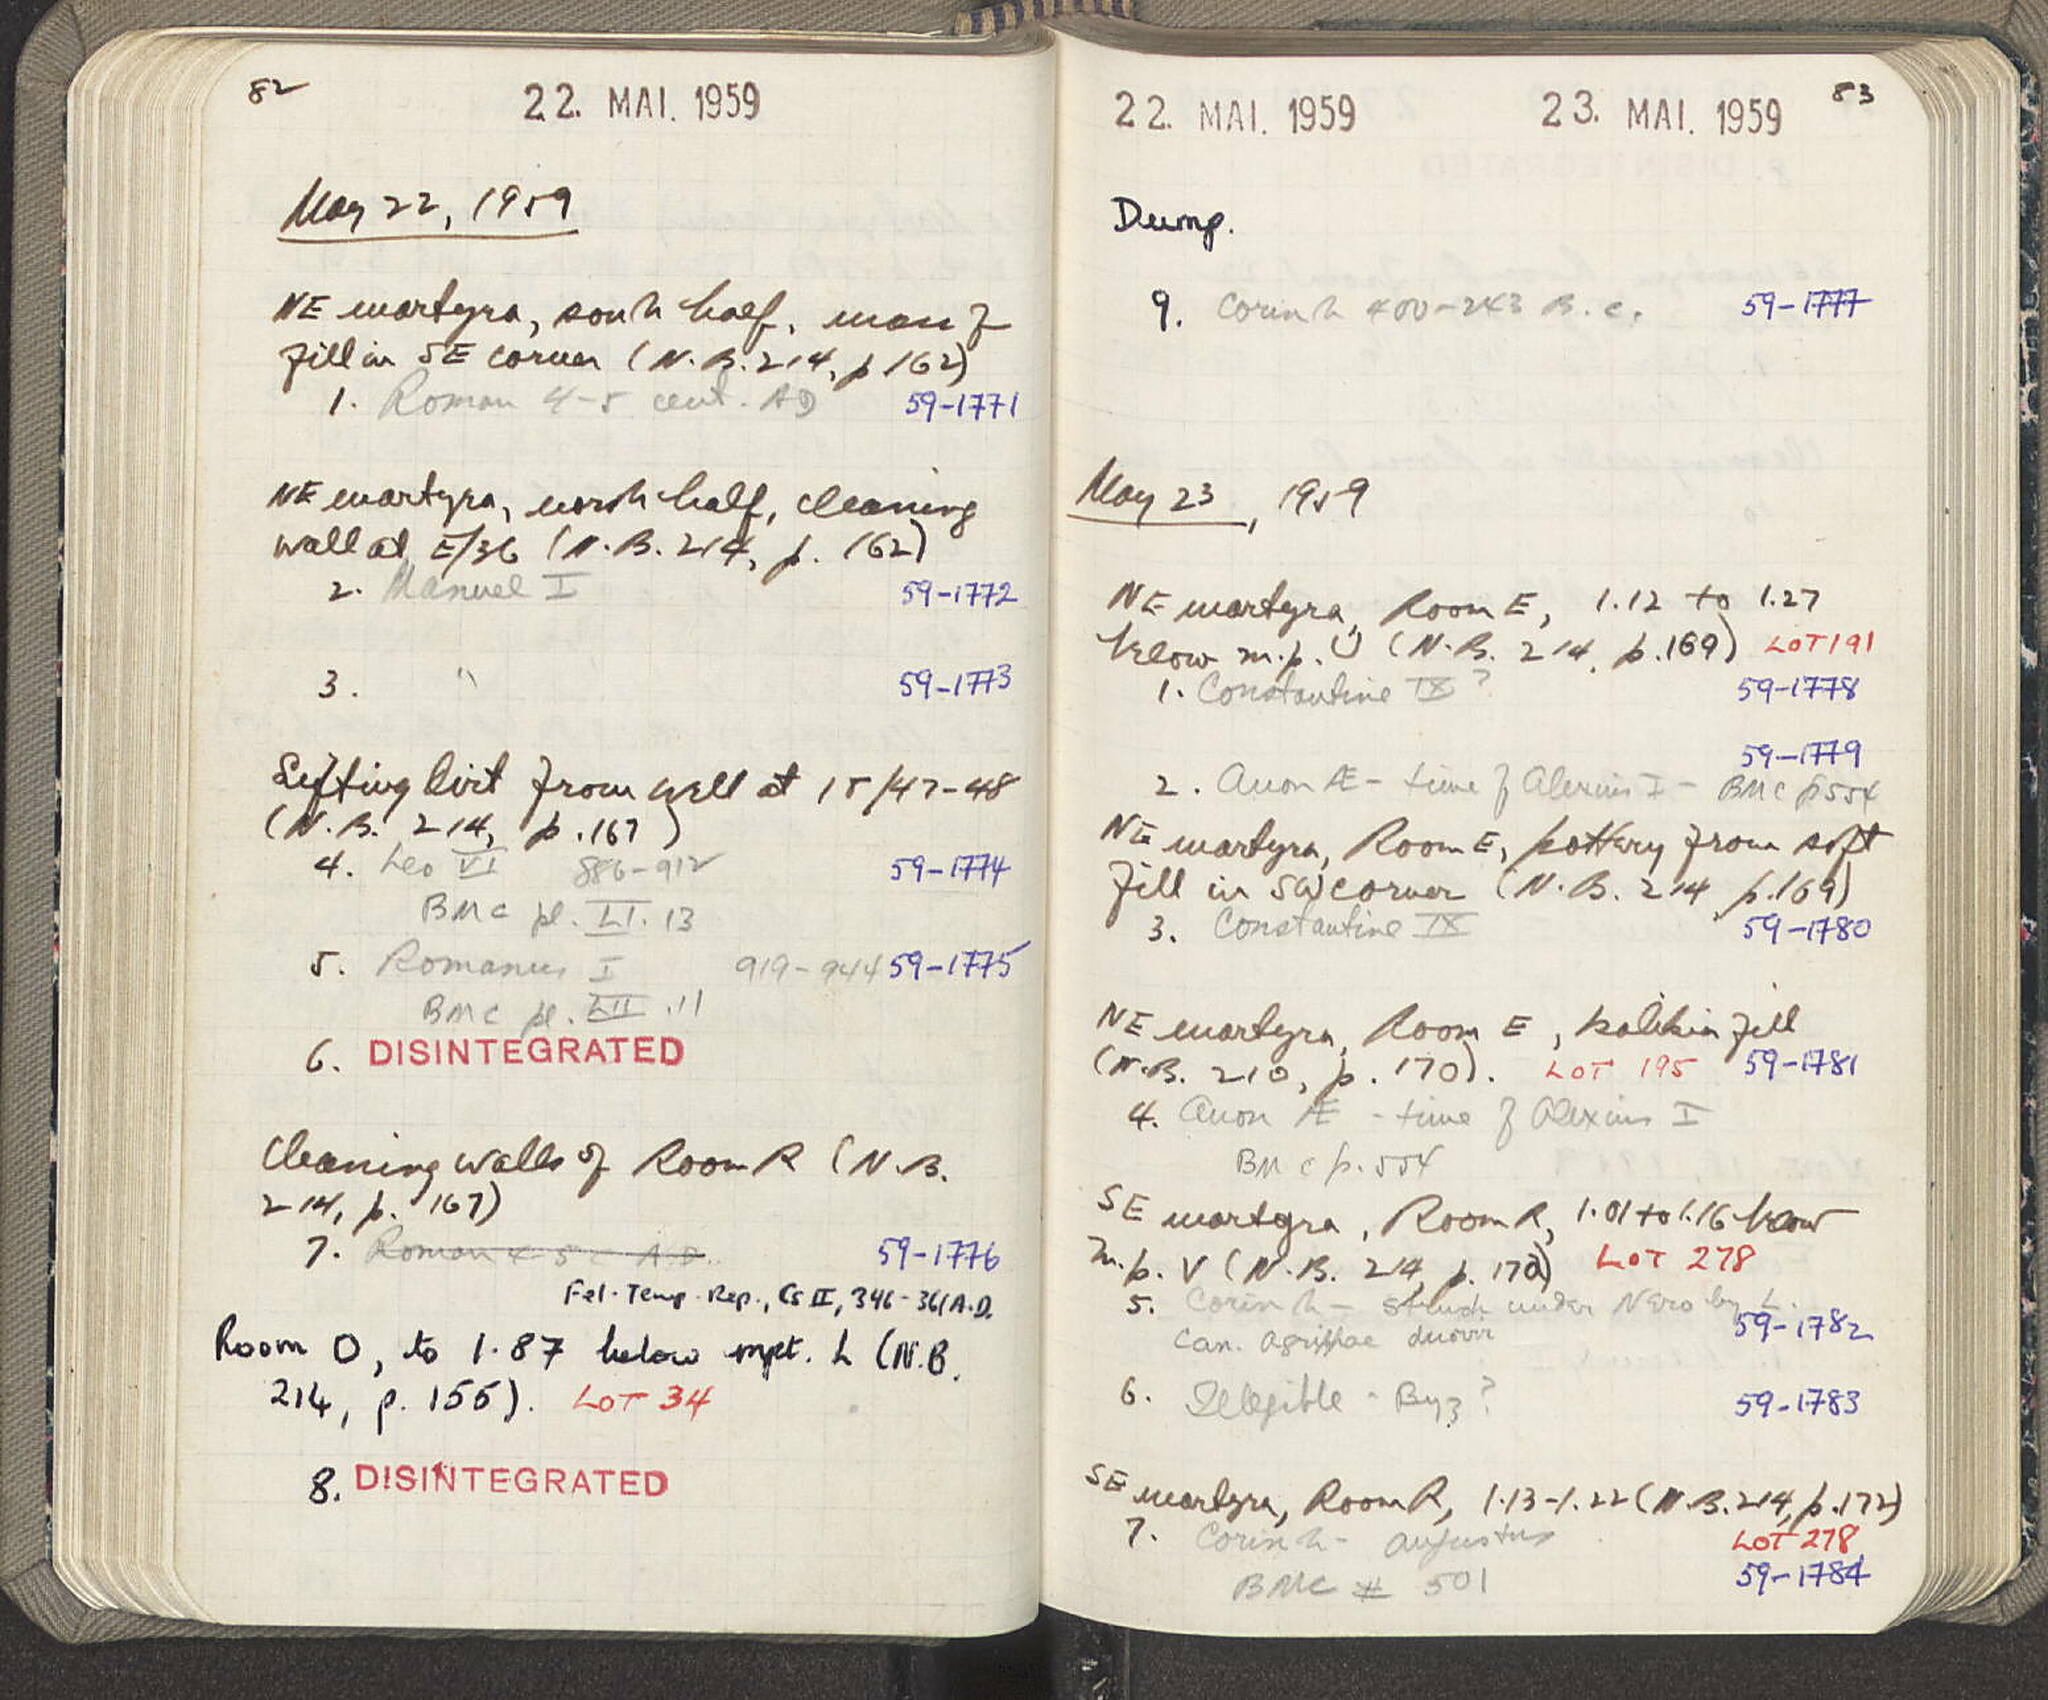 82
22. MAI. 1959
May 22, 1959
NE martyra, south half, mass of
fill in SE corner (N.B. 214, p 162)
1. Roman 4-5 cent. AD 59-1771
NE martyra, north half, cleaning
wall at E/36 (N.B. 214, p. 162)
2. Manuel I 59-1772
3. " 59-1773
Sifting dirt from well at 15/47-48
(N.B. 214, p. 167)
4. Leo VI 886-912 59-1774
BMC pl. LI. 13
5. Romanus I 919-944 59-1775
BMC pl. LII .11
6. DISINTEGRATED
Cleaning walls of Room R (N.B.
214, p. 167)
7. Roman 4-5 c A.D. 59-1776
Fel. Temp. Rep., Cs II, 346-361 A.D.
Room O, to 1.87 below mpt. L (N.B.
214, p. 155). LOT 34
8. DISINTEGRATED
22. MAI. 1959 23. MAI. 1959 83
Dump.
9. Corinth 400-243 B.C. 59-1777
May 23, 1959
NE martyra, Room E, 1.12 to 1.27
below m.p. U (N.B. 214, p.169) LOT 191
1. Constantine IX? 59-1778
59-1779
2. Anon Æ - time of Alexius I - BMC p554
NE martyra, Room E, pottery from soft
fill in SW corner (N.B. 214 p.169)
3. Constantine IX 59-1780
NE martyra, Room E, fill
(N.B. 210, p. 170). LOT 195 59-1781
4. Anon Æ - time of Alexius I
BMC p. 554
SE martyra, Room R, 1.01 to 1.16 below
m.p. V (N.B. 214, p. 170) LOT 278
5. Corinth - struck under Nero by L.
Can. Agrippae duovir 59-1782
6. Illegible - Byz? 59-1783
SE martyra, Room R, 1.13-1.22 (N.B. 214, p.172)
7. Corinth - Augustus LOT 278
BMC # 501 59-1784